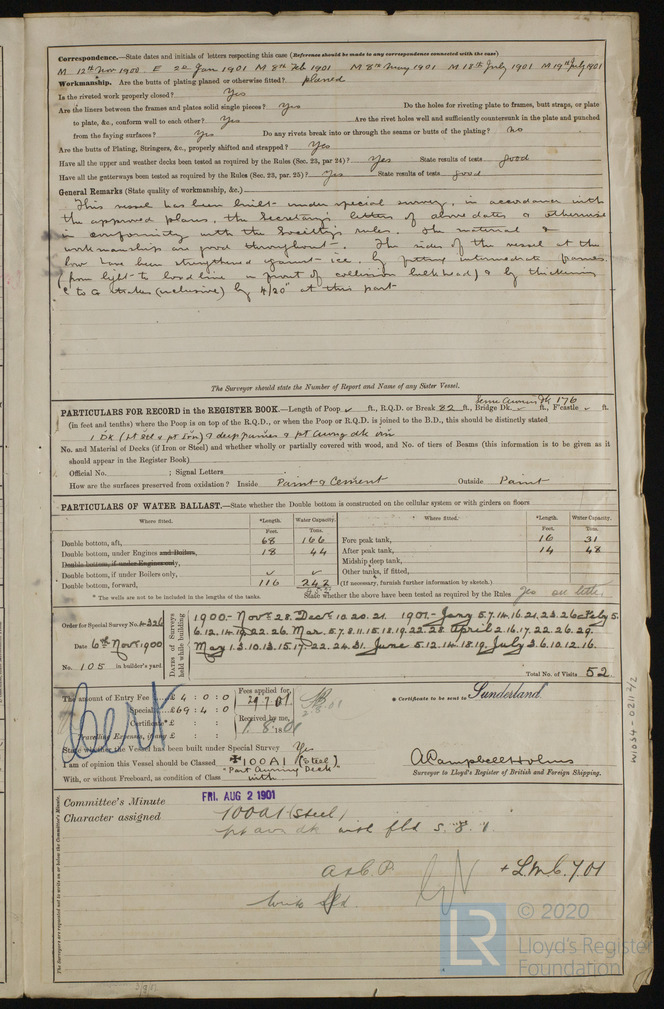 Correspondence.—State dates and initials of letters respecting this case (Reference should be made to any correspondence connected with the case)
M 12th Nov 1900. E 22 Jan 1901 M 8th Feb 1901 M 8th May 1901 M 18th July 1901 M 19th July 1901
Workmanship. Are the butts of plating planed or otherwise fitted? planed
Is the riveted work properly closed? Yes
Are the liners between the frames and plates solid single pieces? Yes Do the holes for riveting plate to frames, butt straps, or plate
to plate, &c., conform well to each other? Yes Are the rivet holes well and sufficiently countersunk in the plate and punched
from the faying surfaces? Yes Do any rivets break into or through the seams or butts of the plating? No
Are the butts of Plating, Stringers, &c., properly shifted and strapped? Yes
Have all the upper and weather decks been tested as required by the Rules (Sec. 23, par 24)? Yes State results of tests good
Have all the gutterways been tested as required by the Rules (Sec. 23, par. 25)? Yes State results of tests good
General Remarks (State quality of workmanship, &c.)
This vessel has been built under special survey, in accordance with
the approved plans, the Secretary's letters of above dates & otherwise
in conformity with the Society's rules. The material &
workmanship are good throughout. The sides of the vessel at the
bow have been strengthened against ice, by putting intermediate frames
(from light to load line in front of collision bulkhead) & by thickening
C to G strakes (inclusive) by 4/20" at this part
The Surveyor should state the Number of Report and Name of any Sister Vessel.
PARTICULARS FOR RECORD in the REGISTER BOOK.—Length of Poop ✓ ft., R.Q.D. or Break 82 ft., Bridge Dk. ✓ ft., F'castle ✓ ft.
Awning Dk 176
(in feet and tenths) where the Poop is on top of the R.Q.D., or when the Poop or R.Q.D. is joined to the B.D., this should be distinctly stated
1 Dk (pt Stl & pt Iron) & deep frames & pt Awng dk iron
No. and Material of Decks (if Iron or Steel) and whether wholly or partially covered with wood, and No. of tiers of Beams (this information is to be given as it
should appear in the Register Book)
Official No. ; Signal Letters
How are the surfaces preserved from oxidation? Inside Paint & Cement Outside Paint
PARTICULARS OF WATER BALLAST.—State whether the Double bottom is constructed on the cellular system or with girders on floors
Where fitted. *Length. Water Capacity. Where fitted. *Length. Water Capacity.
Feet. Tons. Feet. Tons.
Double bottom, aft, 68 166 Fore peak tank, 16 31
Double bottom, under Engines and Boilers, 18 44 After peak tank, 14 48
Double bottom, if under Engines only, Midship deep tank,
Double bottom, if under Boilers only, ✓ ✓ Other tanks, if fitted,
Double bottom, forward, 116 242 (If necessary, furnish further information by sketch.)
* The wells are not to be included in the lengths of the tanks. State whether the above have been tested as required by the Rules Yes
Order for Special Survey No. 4326
Date 6th Nov 1900
No. 105 in builder's yard
Dates of Surveys held while building
1900.- Nov: 28. Dec: 10.20.21. 1901.- Jany 5.7.14.16.21.23.26. Feby 5.
6.12.14.19.22.26. Mar. 5.7.8.11.15.18.19.22.28. April 2.16.17.22.26.29.
May 1.3.10.13.15.17.22.24.31. June 5.12.14.18.19. July 3.6.10.12.16.
Total No. of Visits 52
The amount of Entry Fee £ 4 : 0 : 0
Special £69 : 4 : 0
Certificate* £ : :
Travelling Expenses, if any £ : :
Cert
Fees applied for,
29.7.01
Received by me,
1.8.1801
* Certificate to be sent to Sunderland
State whether the Vessel has been built under Special Survey Yes
I am of opinion this Vessel should be Classed ✠100A1 (Steel).
"Part Awning Deck"
With, or without Freeboard, as condition of Class with
A Campbell Holms
Surveyor to Lloyd's Register of British and Foreign Shipping.
Committee's Minute FRI. AUG 2 1901
Character assigned 100A1 (Steel)
pt awn dk with fbd
A & C. P.
+ L.M.C. 7.01
W1034-0211 2/2
The Surveyors are requested not to write on or below the Committee's Minute.
LR
© 2020
Lloyd's Register
Foundation